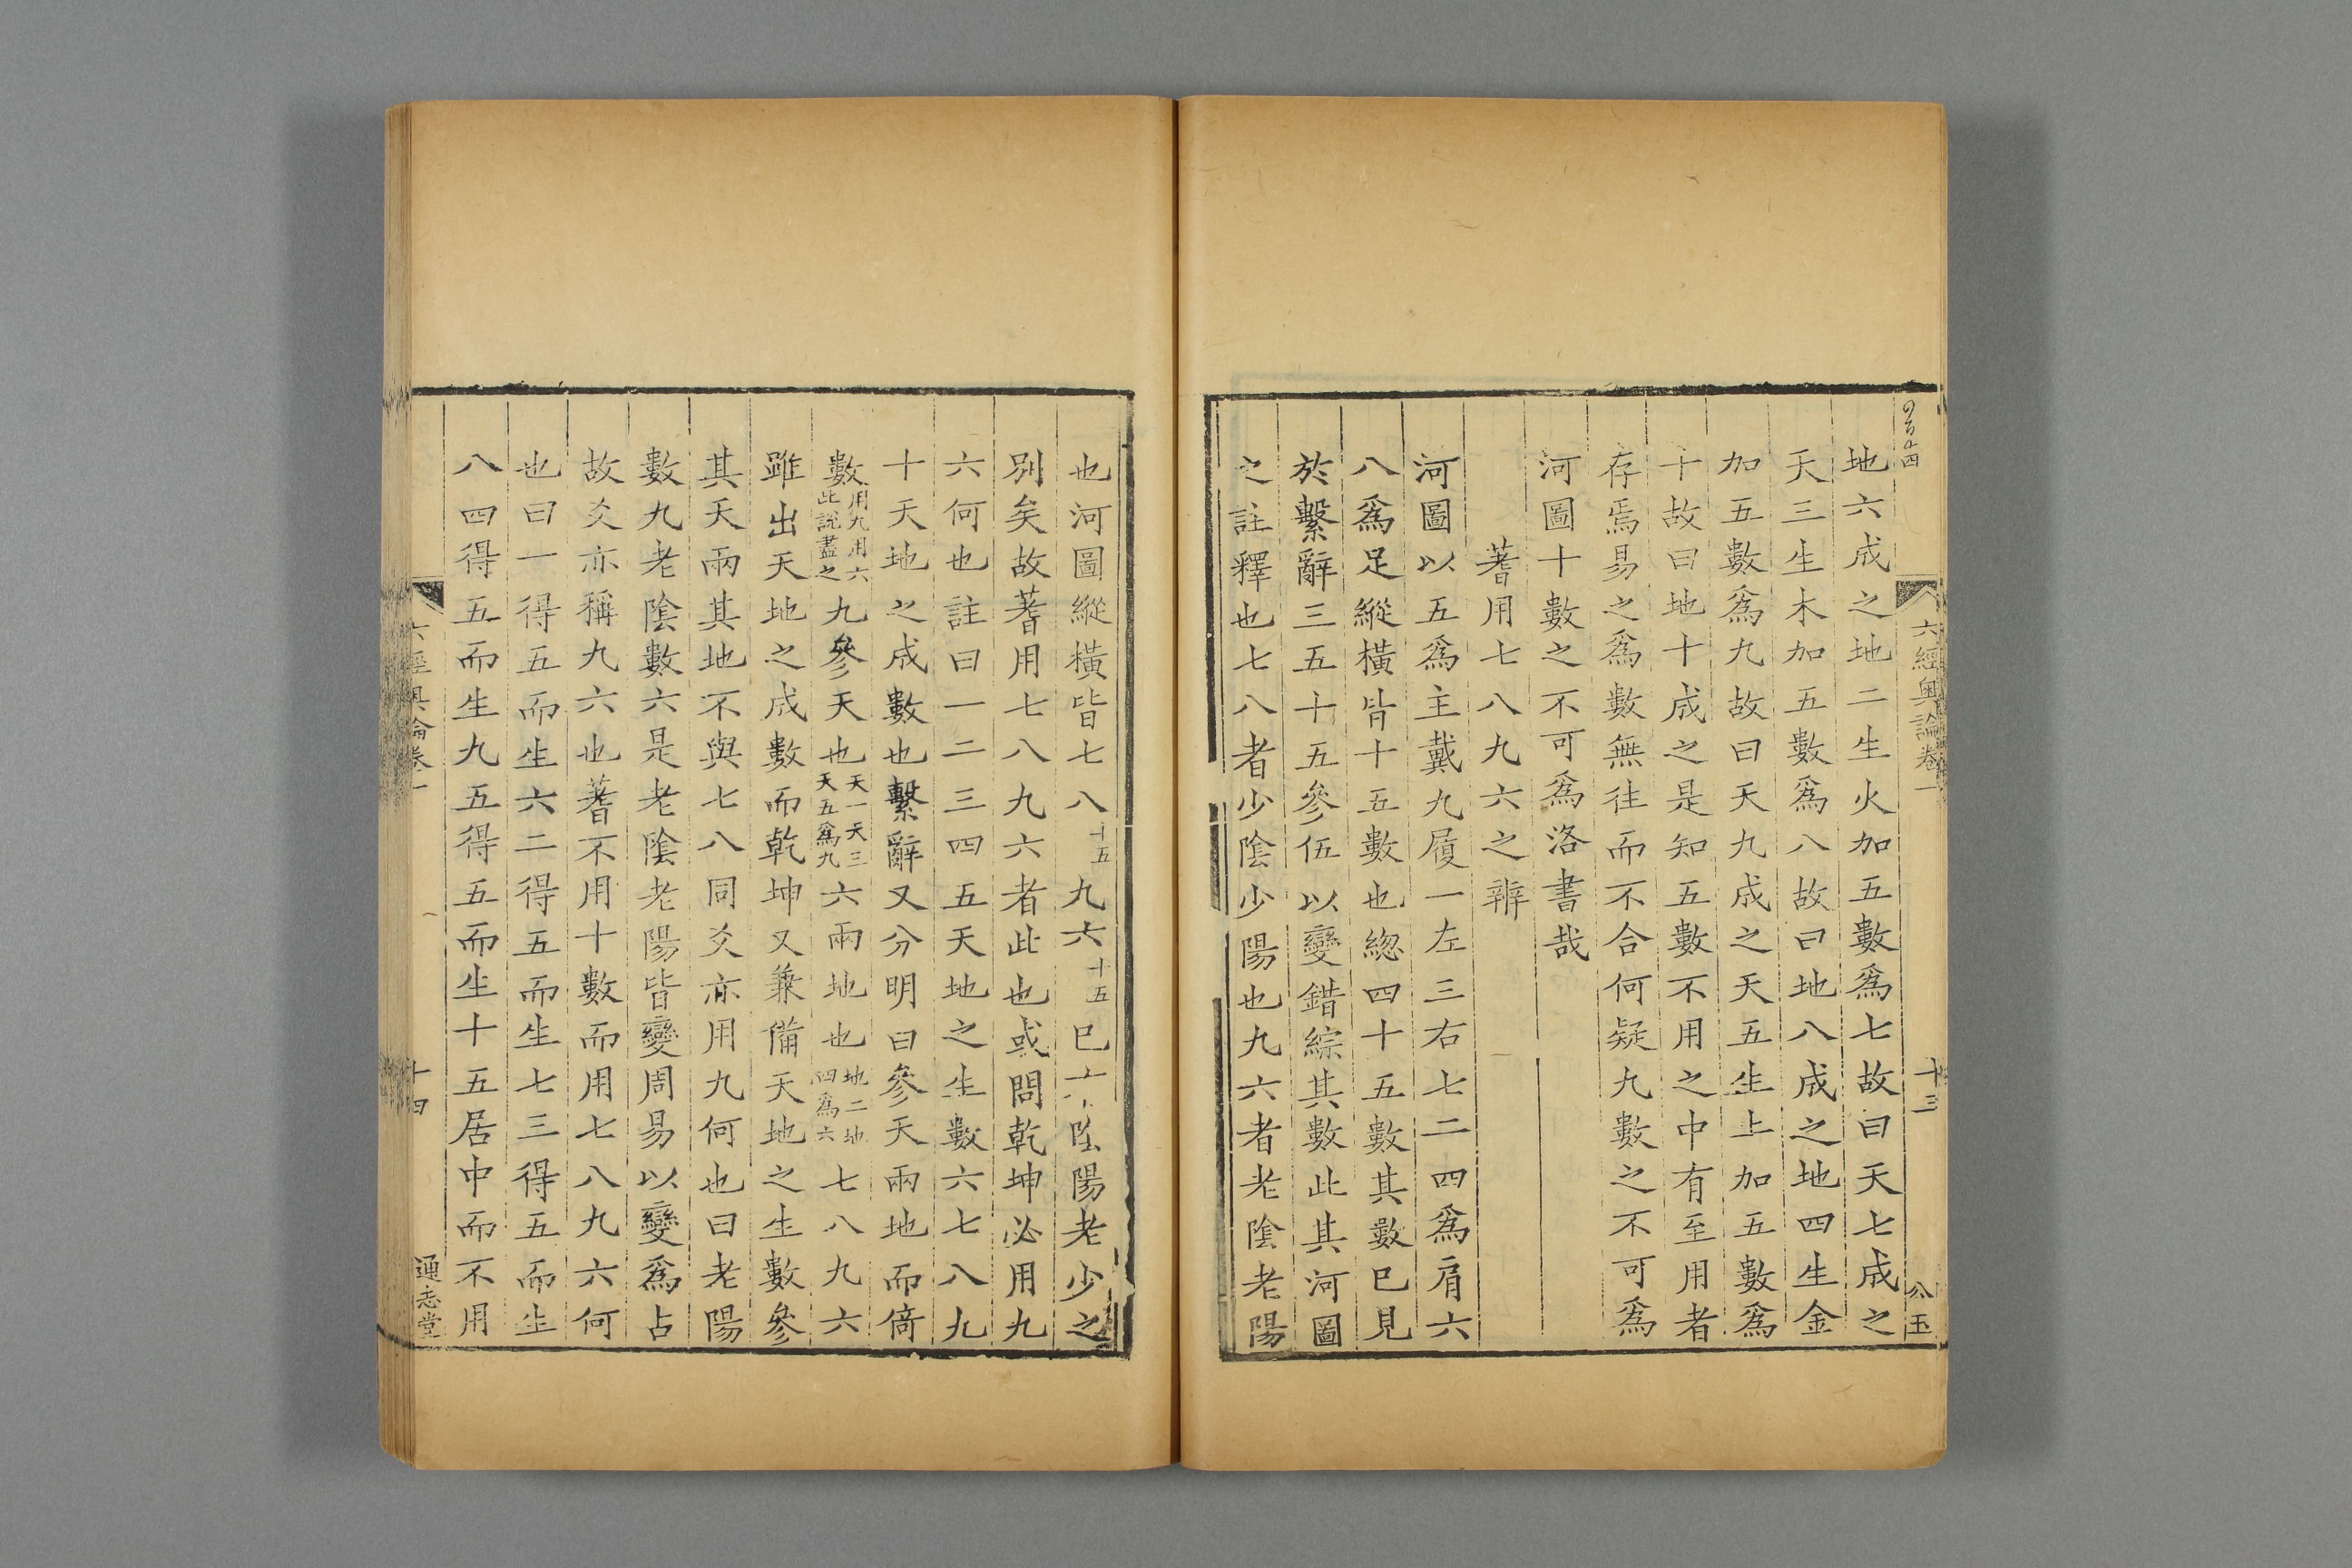 六經奥論卷一
十三
公玉
地六成之地二生火加五數爲七故曰天七成之
天三生木加五數爲八故曰地八成之地四生金
加五數爲九故曰天九成之天五生土加五數爲
十故曰地十成之是知五數不用之中有至用者
存焉易之爲數無往而不合何疑九數之不可爲
河圖十數之不可爲洛書哉
蓍用七八九六之辨
河圖以五爲主戴九履一左三右七二四爲肩六
八爲足縱橫皆十五數也總四十五數其數已見
於繫辭三五十五參伍以變錯綜其數此其河圖
之註釋也七八者少陰少陽也九六者老陰老陽
也河圖縱橫皆七八十五九六十五已陰陽老少之
別矣故蓍用七八九六者此也或問乾坤必用九
六何也註曰一二三四五天地之生數六七八九
十天地之成數也繫辭又分明曰參天兩地而倚
數用九用六此說盡之九參天也天一天三天五爲九六兩地也地二地四爲六七八九六
雖出天地之成數而乾坤又兼備天地之生數參
其天兩其地不與七八同爻亦用九何也曰老陽
數九老陰數六是老陰老陽皆變周易以變爲占
故爻亦稱九六也蓍不用十數而用七八九六何
也曰一得五而生六二得五而生七三得五而生
八四得五而生九五得五而生十五居中而不用
六經奥論卷一
十四
通志堂